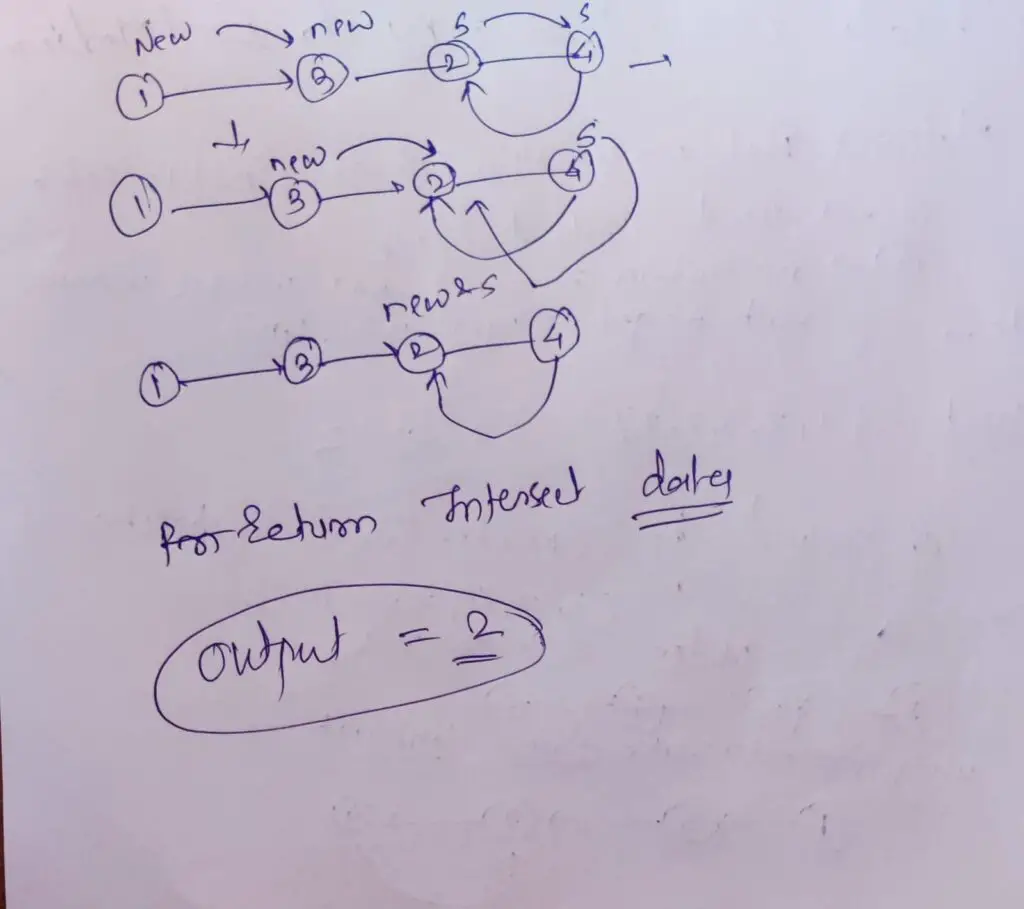 New new S S
1 3 2 4
new S
1 3 2 4
new & S
1 3 2 4
return Intersect data
output = 2